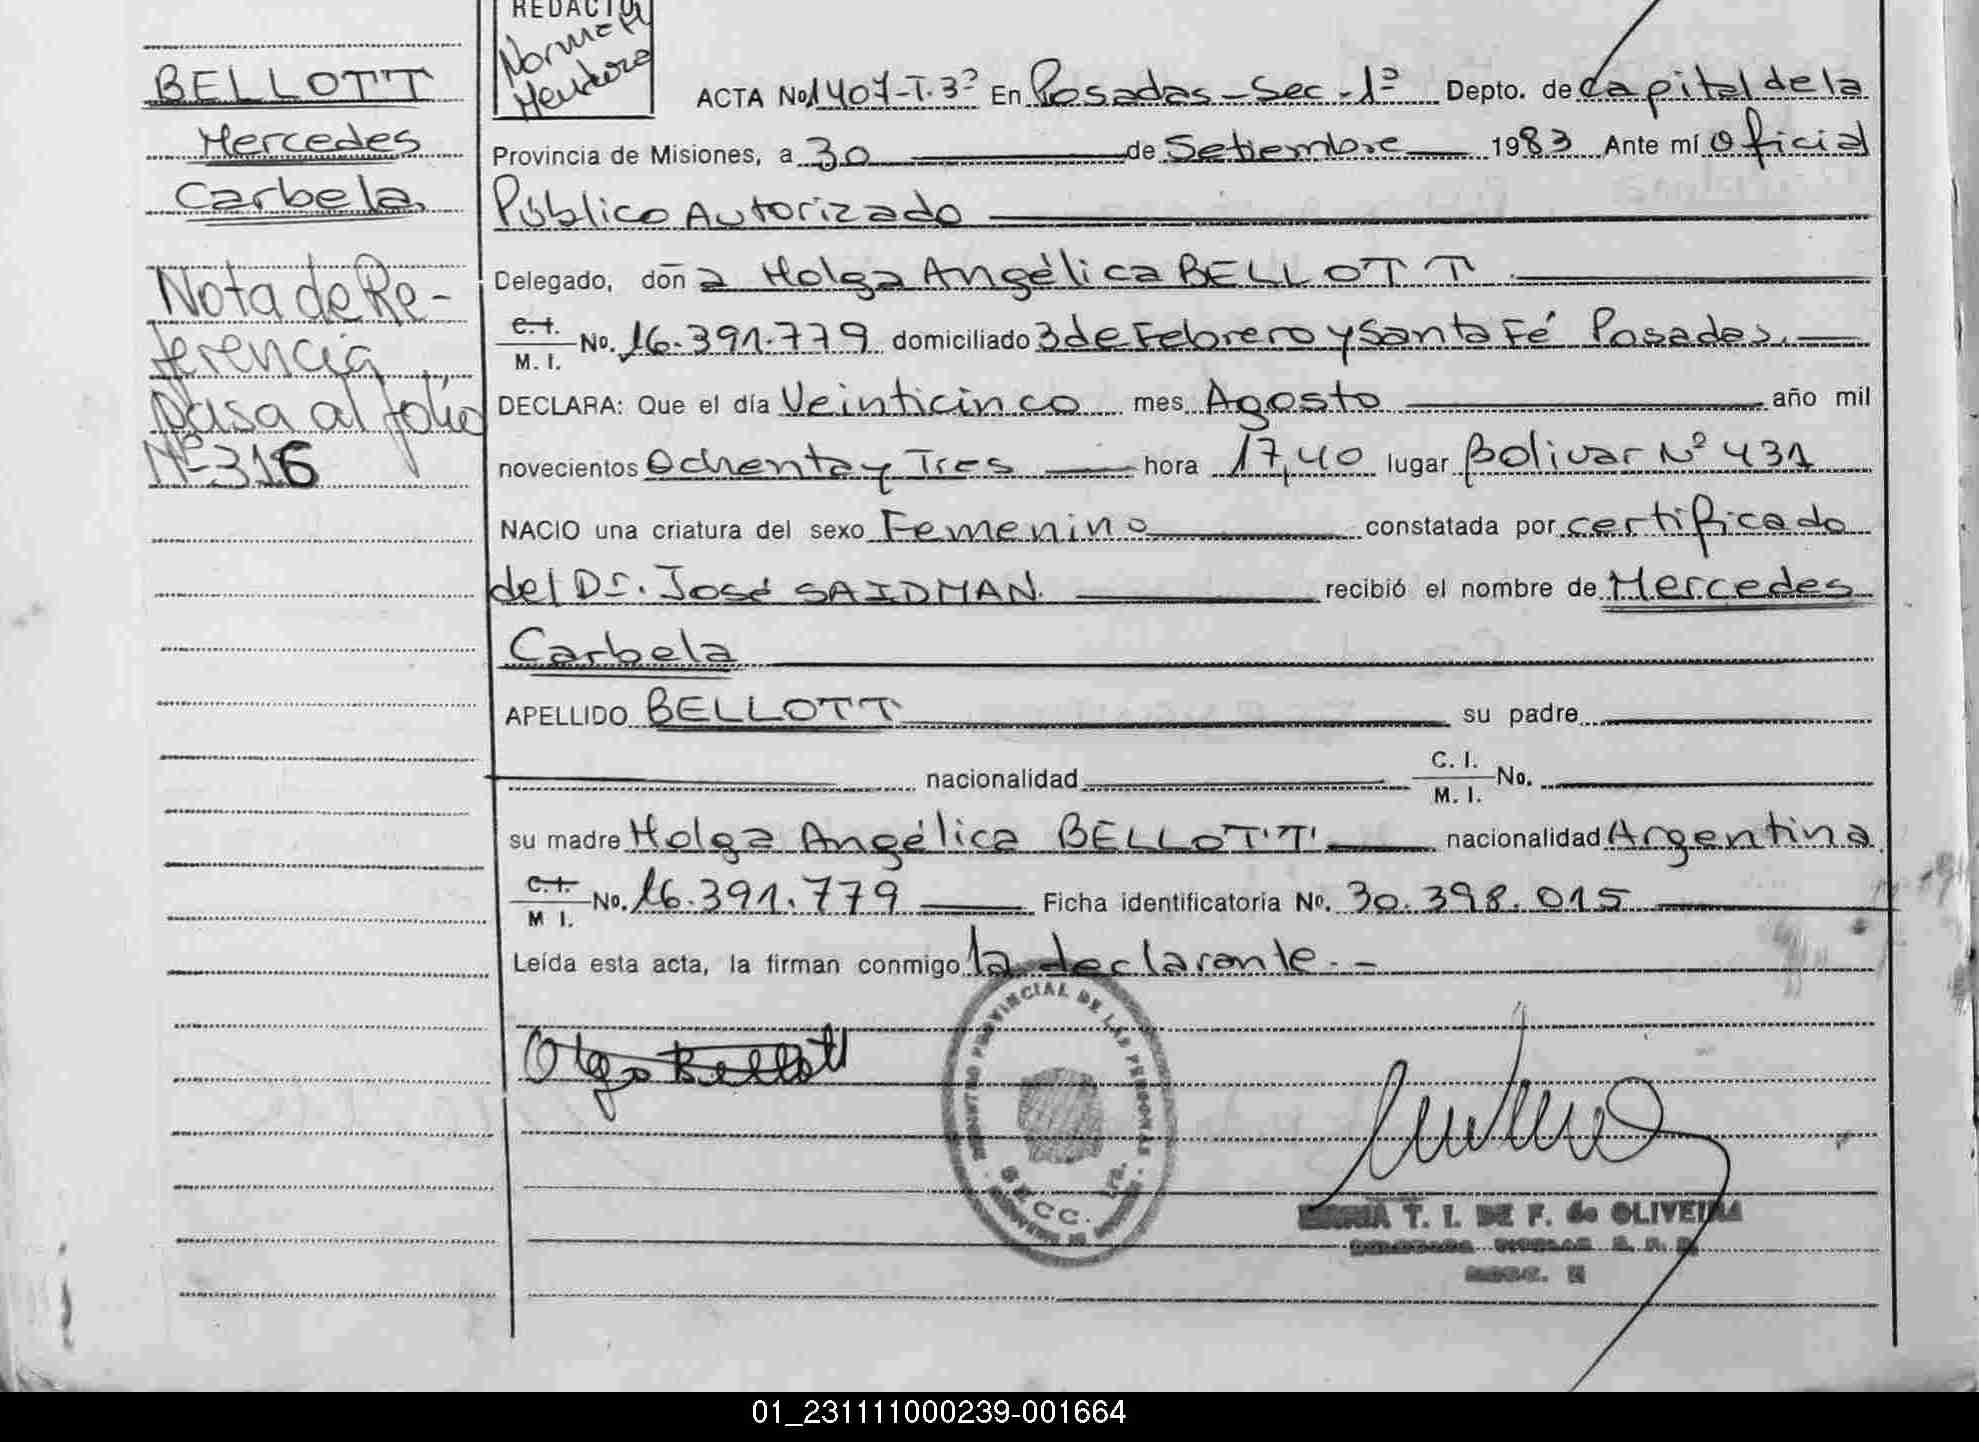 REDACTO
Norma H
BELLOTT
Mercedes
Carbela
Nota de Re-
ferencia
pasa al folio
Nº 316
ACTA No 1407-T.3º En Posadas-Sec.-1º Depto. de Capital de la
Provincia de Misiones, a 30 de Setiembre 1983 Ante mí Oficial
Público Autorizado
Delegado, doña Holga Angélica BELLOTT
C.I. M.I. No. 16.391.779 domiciliado 3 de Febrero y Santa Fé Posadas.
DECLARA: Que el día Veinticinco mes Agosto año mil
novecientos Ochenta y Tres hora 17,40 lugar Bolivar Nº 431
NACIO una criatura del sexo Femenino constatada por certificado
del Dr. José SAIDMAN. recibió el nombre de Mercedes
Carbela
APELLIDO BELLOTT su padre
nacionalidad C. I. M. I. No.
su madre Holga Angélica BELLOTT nacionalidad Argentina
C.I. M I. No. 16.391.779 Ficha identificatoria No. 30.398.015
Leída esta acta, la firman conmigo la declarante.-
Olga Bellott
PROVINCIAL DE LAS PERSONAS
SECC. 1ra.
MARIA T. I. DE F. de OLIVEIRA
01_231111000239-001664